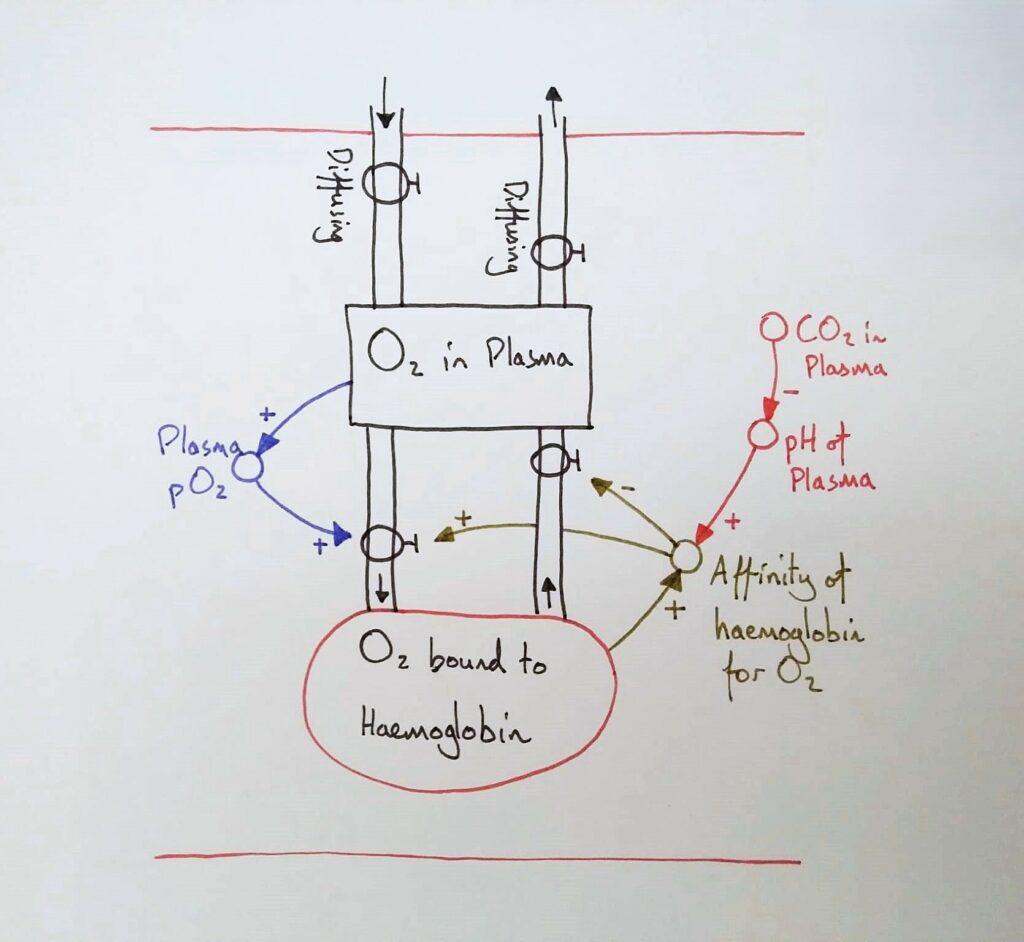 Diffusing
Diffusing
O₂ in Plasma
CO₂ in
Plasma
-
pH of
Plasma
+
+
Plasma
pO₂
+
+
-
Affinity of
haemoglobin
for O₂
+
O₂ bound to
Haemoglobin